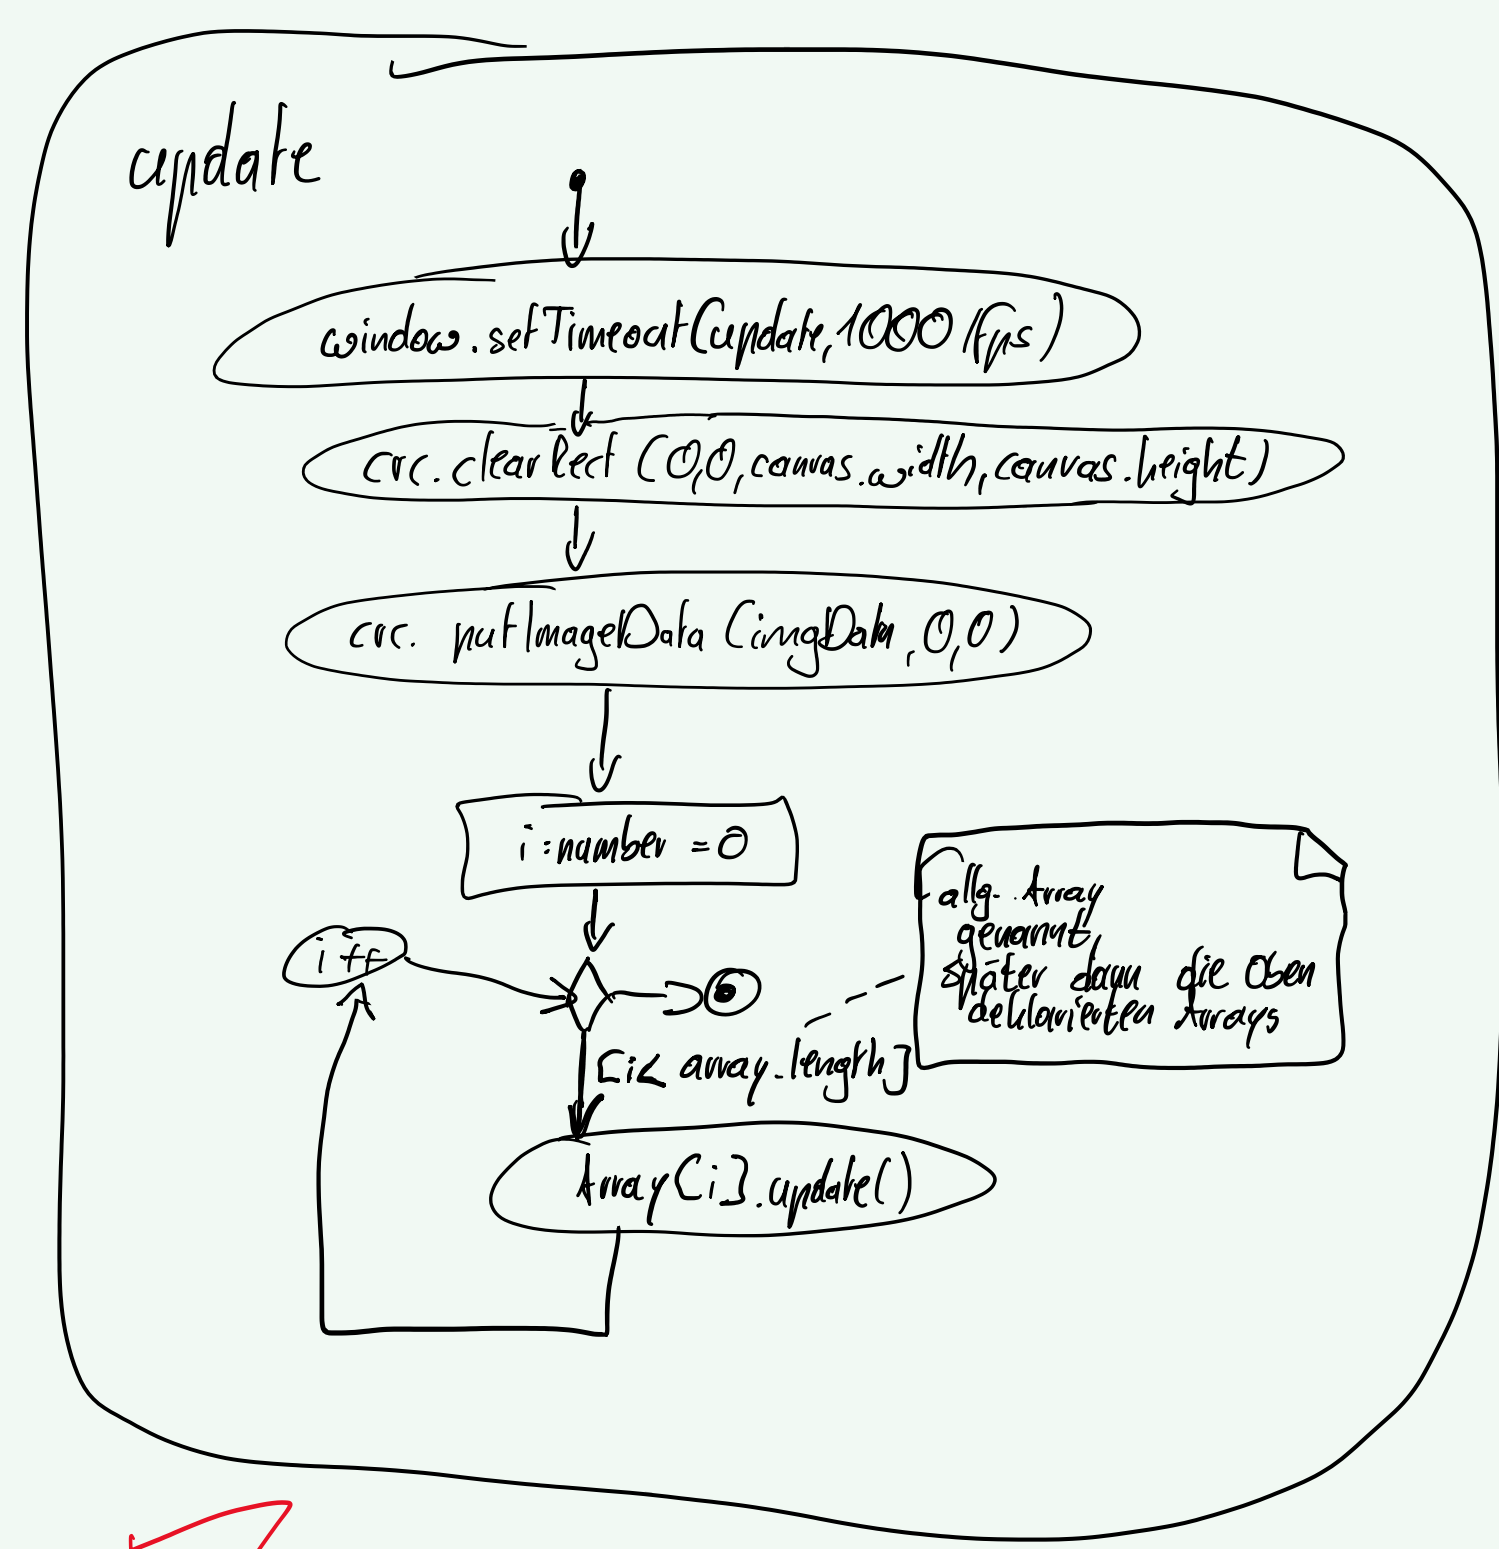 update
window.setTimeout(update,1000/fps)
crc.clearRect(0,0,canvas.width,canvas.height)
crc.putImageData(imgData,0,0)
i:number=0
i++
allg. Array
genannt,
später dann die Oben
deklarierten Arrays
[i< array.length]
Array[i].update()